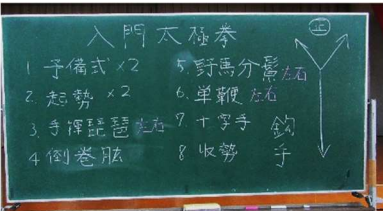 入門太極拳
1 予備式 x2
2. 起勢 x2
3. 手揮琵琶 左右
4 倒巻肱
5. 野馬分鬃 左右
6. 単鞭 左右
7 十字手
8 収勢
鈎手
正